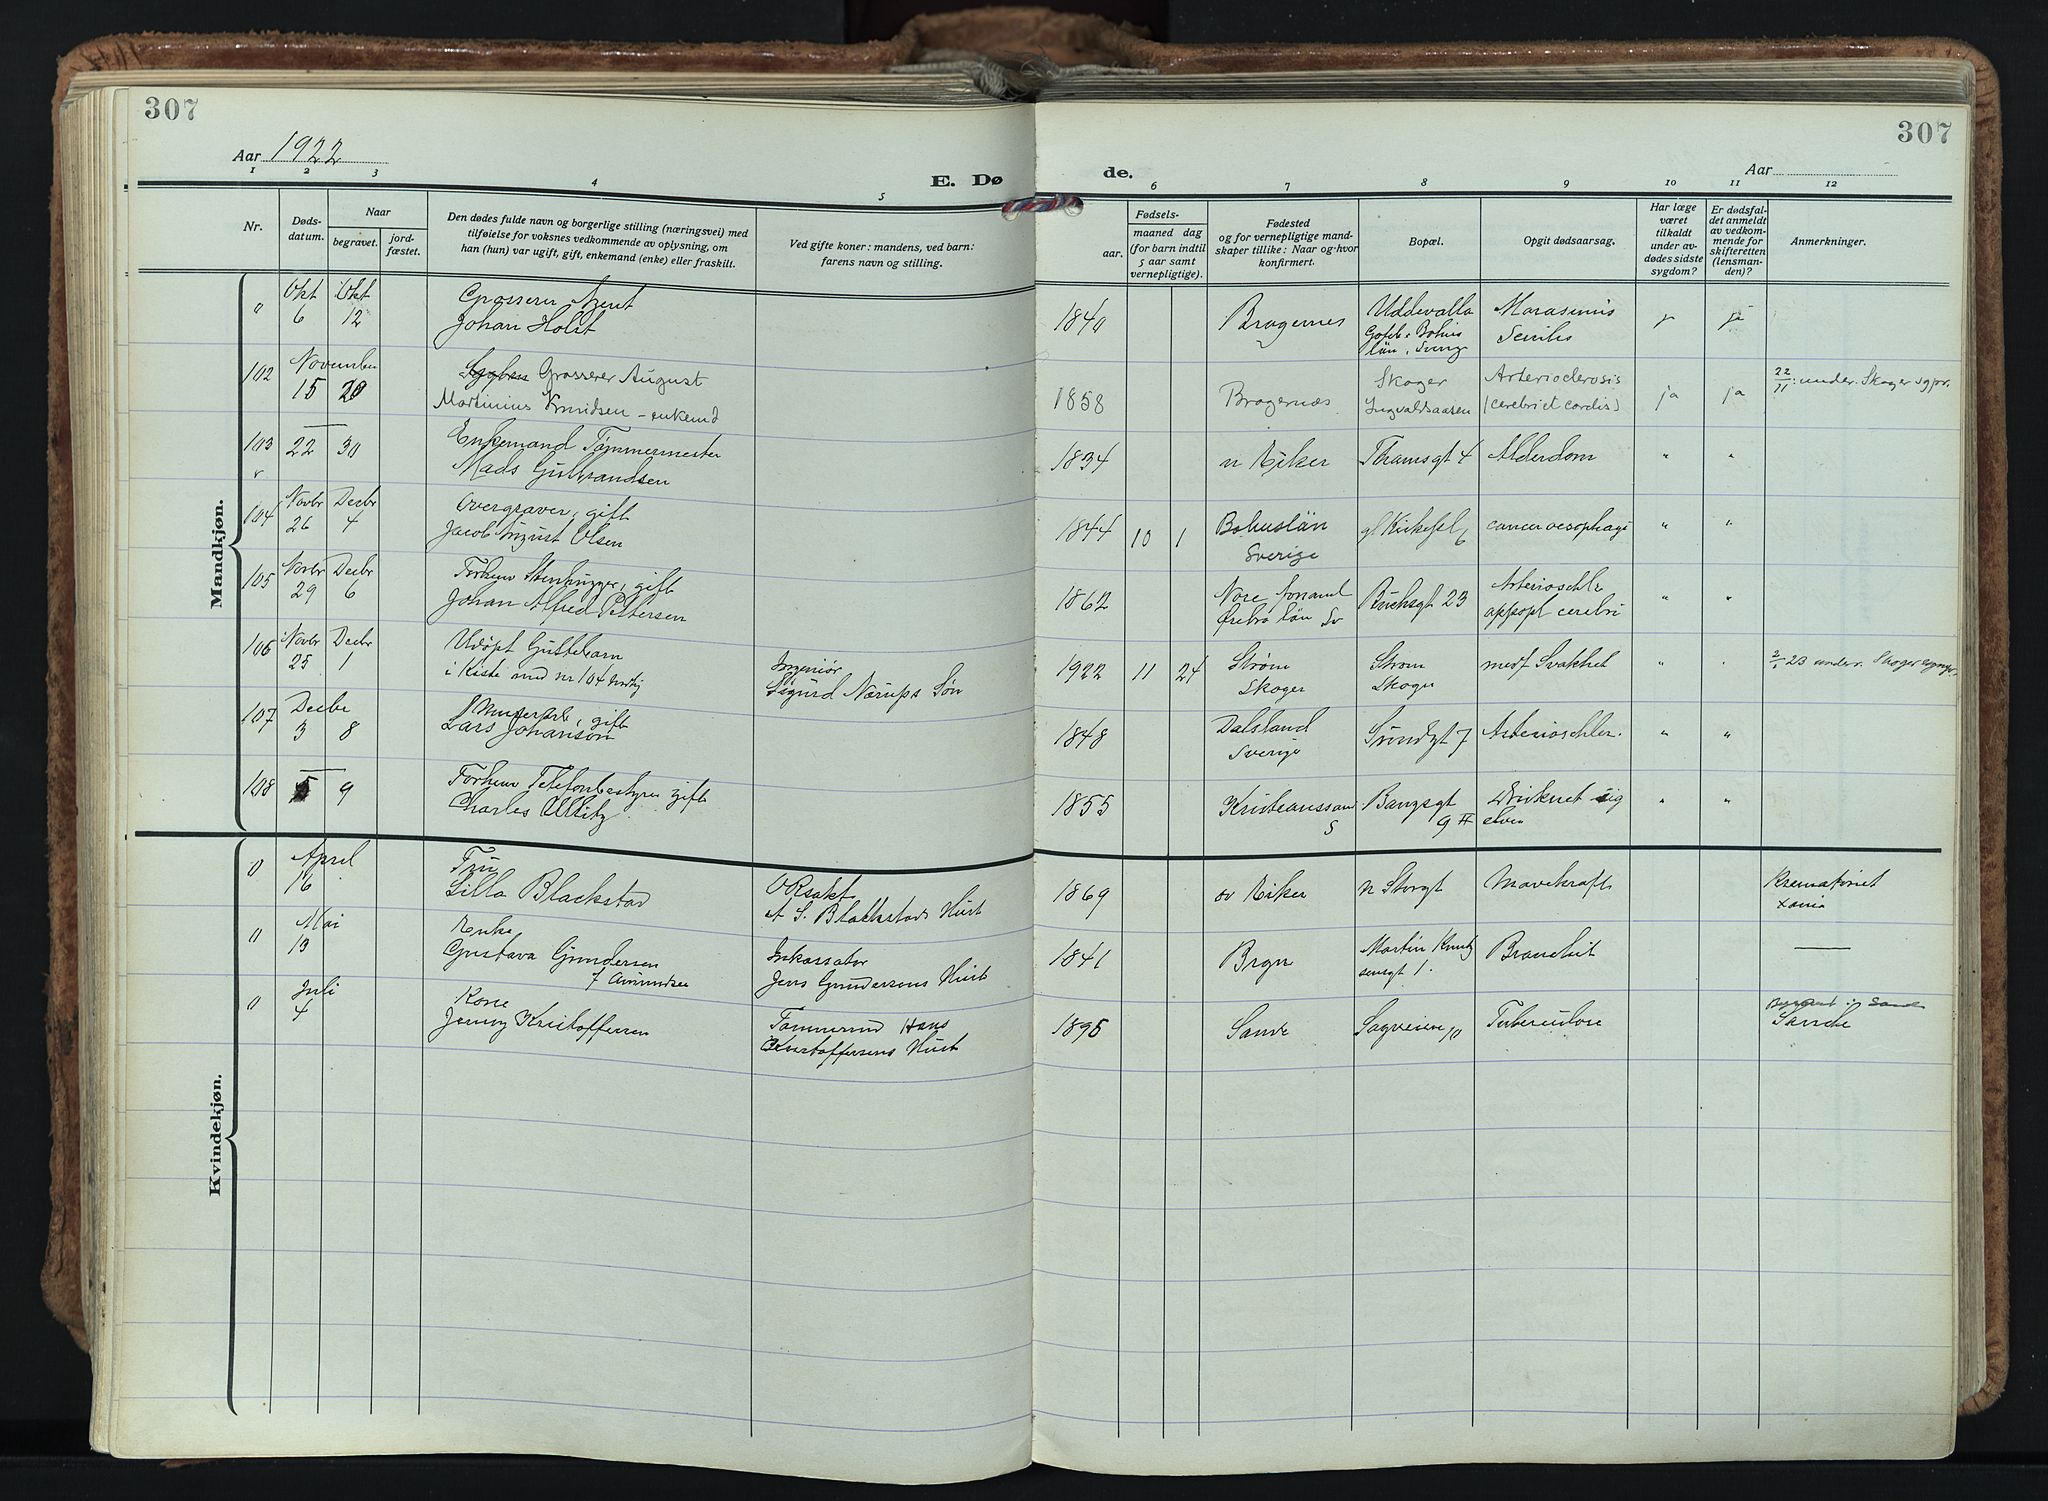 307
307
Aar 1922
Aar
E. Dø
de.
1 2 3 4 5 6 7 8 9 10 11 12
Nr.
Døds-
datum.
Naar
begravet.
jord-
fæstet.
Den dødes fulde navn og borgerlige stilling (næringsvei) med
tilføielse for voksnes vedkommende av oplysning, om
han (hun) var ugift, gift, enkemand (enke) eller fraskilt.
Ved gifte koner: mandens, ved barn:
farens navn og stilling.
Fødsels-
aar.
maaned dag
(for barn indtil
5 aar samt
vernepligtige).
Fødested
og for vernepligtige mand-
skaper tillike: Naar og hvor
konfirmert.
Bopæl.
Opgit dødsaarsag.
Har læge
været
tilkaldt
under av-
dødes sidste
sygdom?
Er dødsfal-
det anmeldt
av vedkom-
mende for
skifteretten
(lensman-
den)?
Anmerkninger.
Mandkjøn.
0 Okt Okt Grosserer Agent
6 12 Johan Holst
1840 Bragernes Uddevalla Marasmus j ja
Senilis
län, Sverig
102 November Grosserer August
15 20 Martinius Knudsen - enkemd
1858 Bragernæs Skoger Arteriosclerosis ja ja 22/11 under. Skoger sgpr.
Ingvaldsaasen (cerebri et cordis)
103 22 30 Enkemand Tømmermester
Mads Gulbrandsen
1834 n Eiker Thamsgt 4 Alderdom " "
104 Novbr Decbr Overgraver, gift
26 4 Jacob August Olsen
1844 10 1 Bohuslän gl Kirkepl 6 cancer oesophagi " "
Sverige
105 Novbr Decbr Forhenv Stenhugger, gift
29 6 Johan Alfred Pettersen
1862 Nore Buchsgt 23 Arterioschle " "
Ørebro län Sv apopl cerebri
106 Novbr Decbr Udøpt Guttebarn Ingeniør
25 1 i Kiste med nr 104 Sigurd Nærups Søn
1922 11 24 Strøm Strøm medf Svakhet " " 2/1 23 underr. Skoger sognepr.
Skoger Skoger
107 Decbr Murerarb, gift
3 8 Lars Johanson
1848 Dalsland Sundgt 7 Arterioschler. " "
Sverige
108 5 9 Forhenv Telefonbestyrer gift
Charles
1855 Kristianssand Bangsgt Druknet sig " "
S 9 II elven
Kvindekjøn.
0 April Fru O Rsakf
16 Lilla Blackstad A S. Blakkstads Hust
1869 øv Eiker n Storgt Mavekræft Krematoriet
Xania
0 Mai Enke Inkassator
13 Gustava Gundersen Jens Gundersens Hust
f Amundsen
1841 Brgn Martin Knud Brandhit
sensgt 1.
0 Juli Kone Tømmermd Hans
4 Jenny Kristoffersen Kristoffersens Hust
1895 Sande Sagveien 10 Tuberculose
Sande